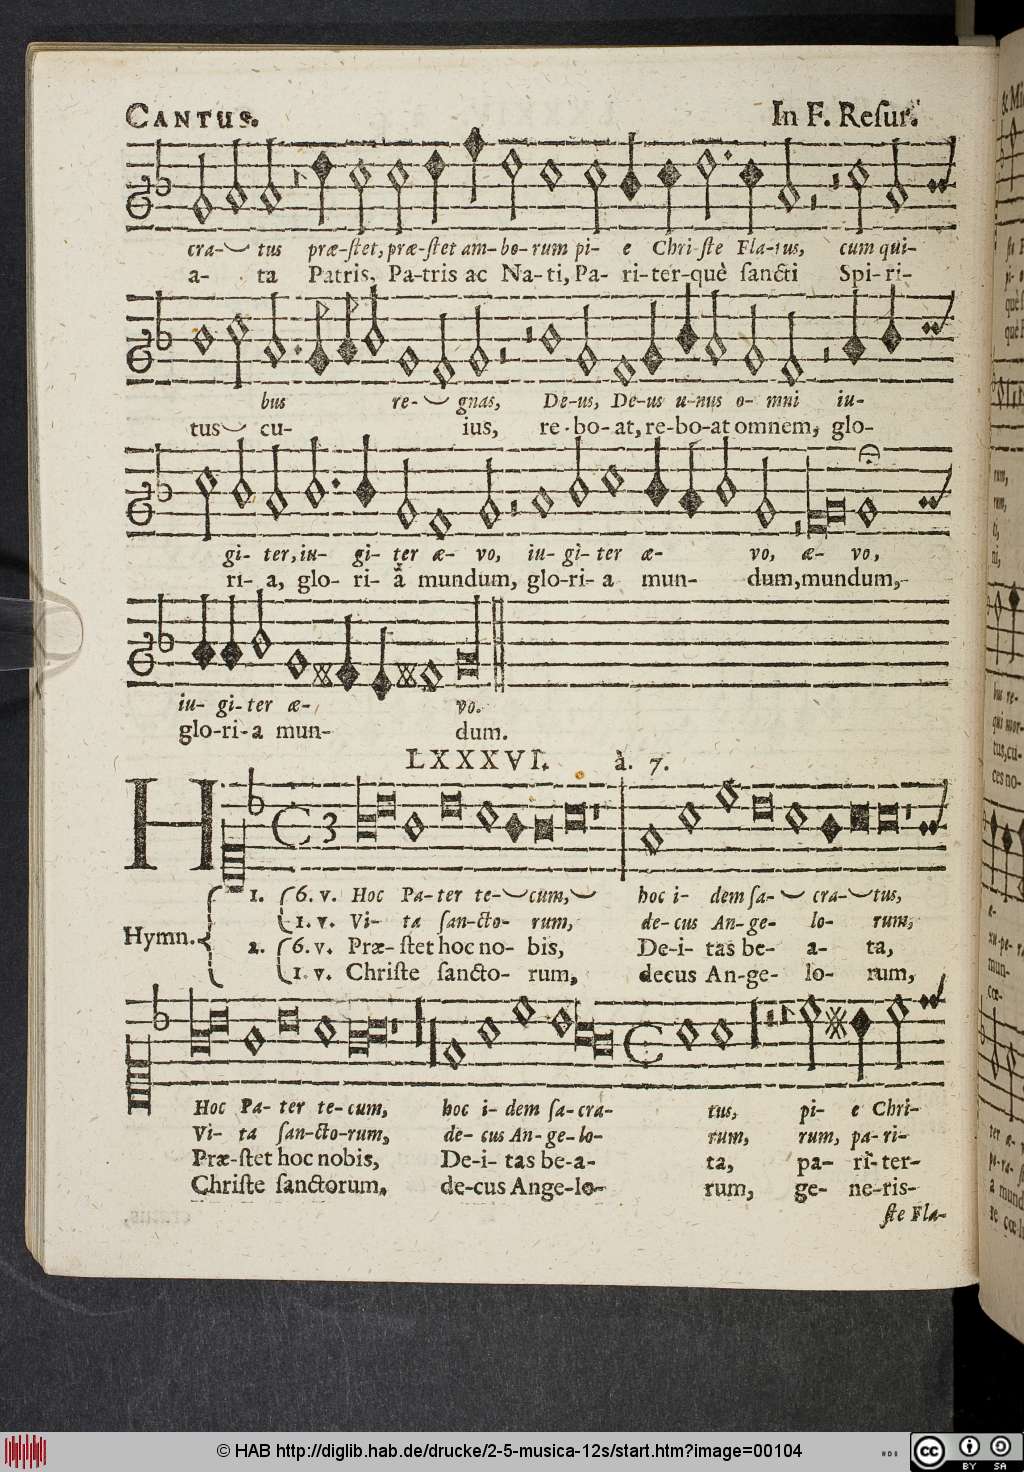 CANTUS.
In F. Reſur.
cra- tus præ-ſtet, præ-ſtet am-bo-rum pi- e Chri-ſte Fla-tus, cum qui-
a- ta Patris, Pa-tris ac Na-ti, Pa- ri-ter-què ſancti Spi-ri-
bus re- gnas, De-us, De-us u-nus o- mni iu-
tus cu- ius, re-bo-at, re-bo-at omnem, glo-
gi- ter, iu- gi- ter æ- vo, iu- gi- ter æ- vo, æ- vo,
ri- a, glo- ri- à mundum, glo-ri- a mun- dum, mundum,
iu- gi-ter æ- vo.
glo-ri-a mun- dum.
LXXXVI. à. 7.
H
C 3
1. 6. v. Hoc Pa-ter te- cum, hoc i- dem ſa- cra- tus,
1. v. Vi- ta ſan-cto- rum, de-cus An-ge- lo- rum,
Hymn.
2. 6. v. Præ-ſtet hoc no- bis, De-i- tas be- a- ta,
1. v. Chriſte ſancto- rum, decus An-ge- lo- rum,
Hoc Pa- ter te-cum, hoc i- dem ſa-cra- tus, pi- e Chri-
Vi- ta ſan-cto-rum, de- cus An-ge-lo- rum, rum, pa-ri-
Præ-ſtet hoc nobis, De-i- tas be-a- ta, pa- ri-ter-
Chriſte ſanctorum, de-cus Ange-lo- rum, ge- ne-ris-
ſte Fla-
© HAB http://diglib.hab.de/drucke/2-5-musica-12s/start.htm?image=00104
cc BY SA